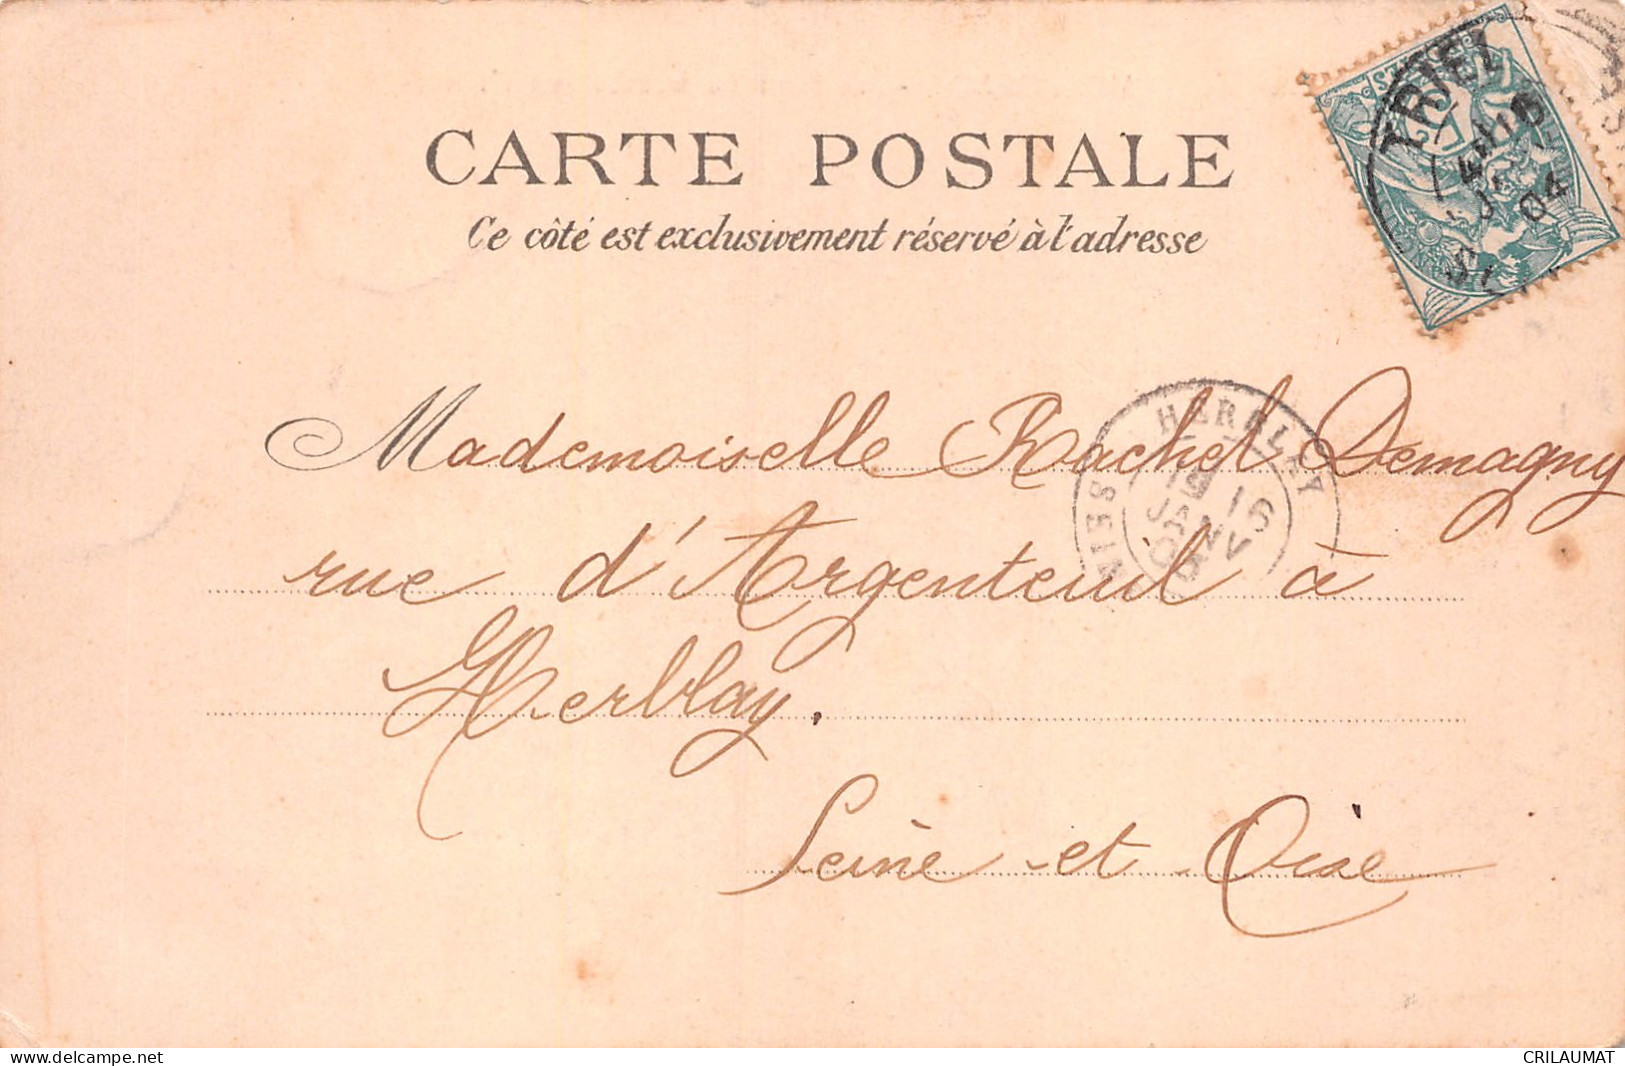 CARTE POSTALE
Ce côté est exclusivement réservé à l'adresse
TRIEL
04
HERBLAY
SEINE
19 16
JANV
Mademoiselle Rachel Demagny
rue d'Argenteuil à
Herblay.
Seine et Oise
www.delcampe.net
CRILAUMAT